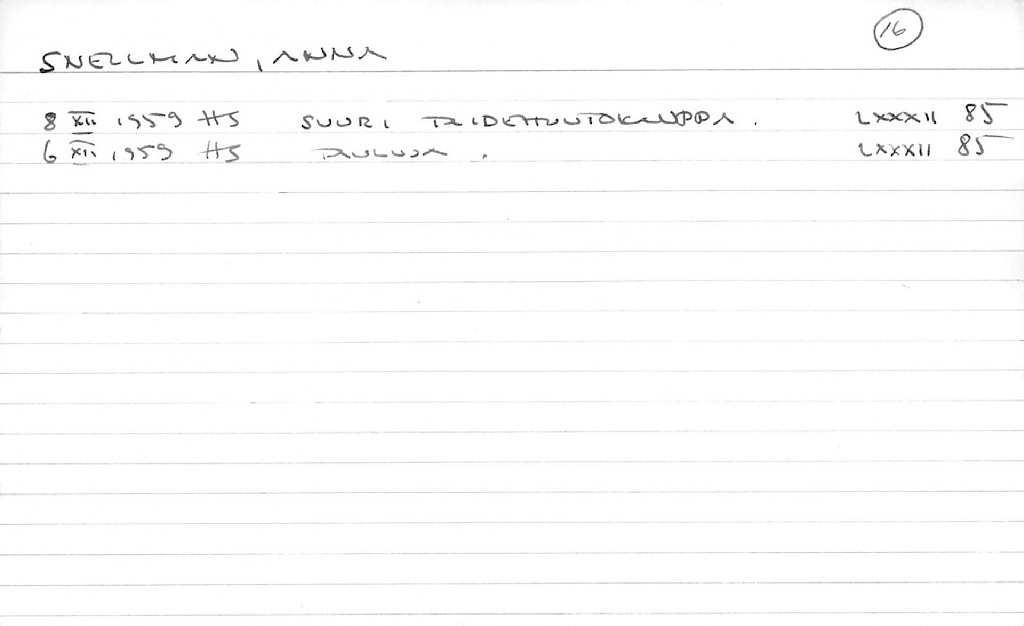 16
SNELLMAN, ANNA
8 XII 1959 HS SUURI TAIDEHUUTOKAUPPA. LXXXII 85
6 XII 1959 HS TAULUJA. LXXXII 85